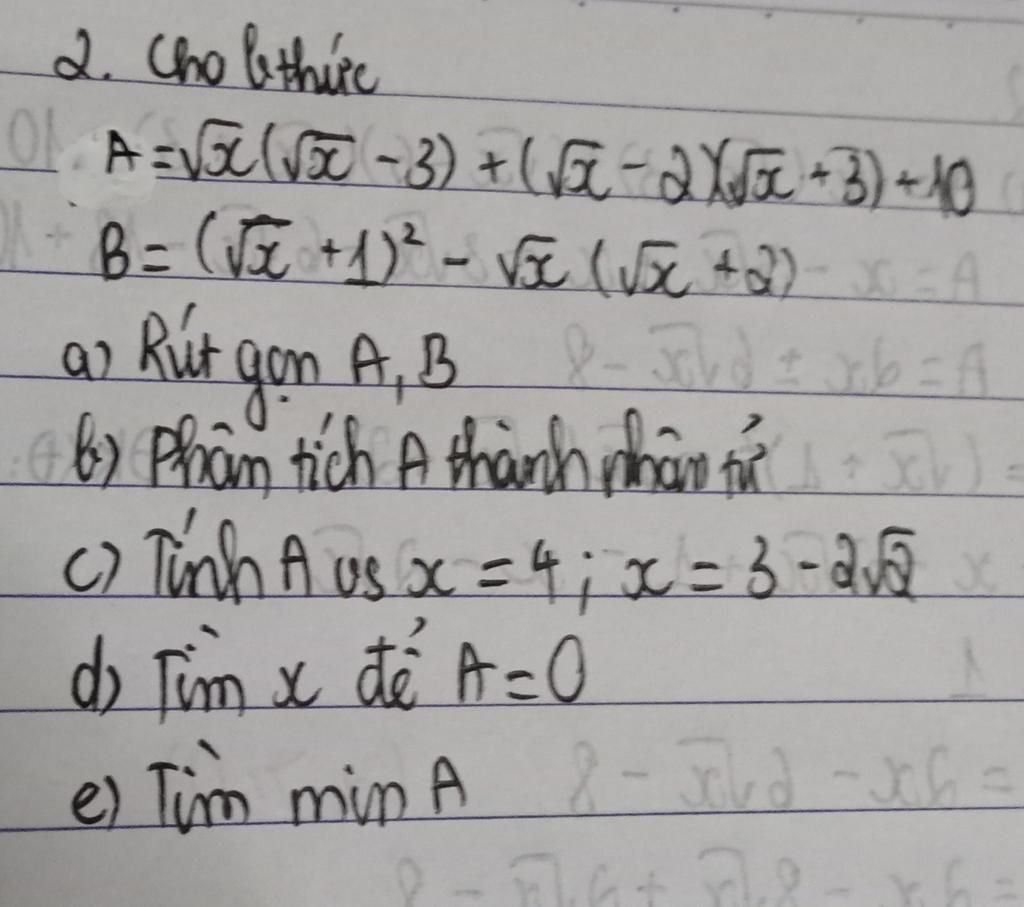 2. Cho bthức
A = √x(√x - 3) + (√x - 2)(√x + 3) + 10
B = (√x + 1)² - √x (√x + 2)
a) Rút gọn A, B
b) Phân tích A thành nhân tử
c) Tính A vs x = 4 ; x = 3 - 2√2
d) Tìm x để A = 0
e) Tìm min A